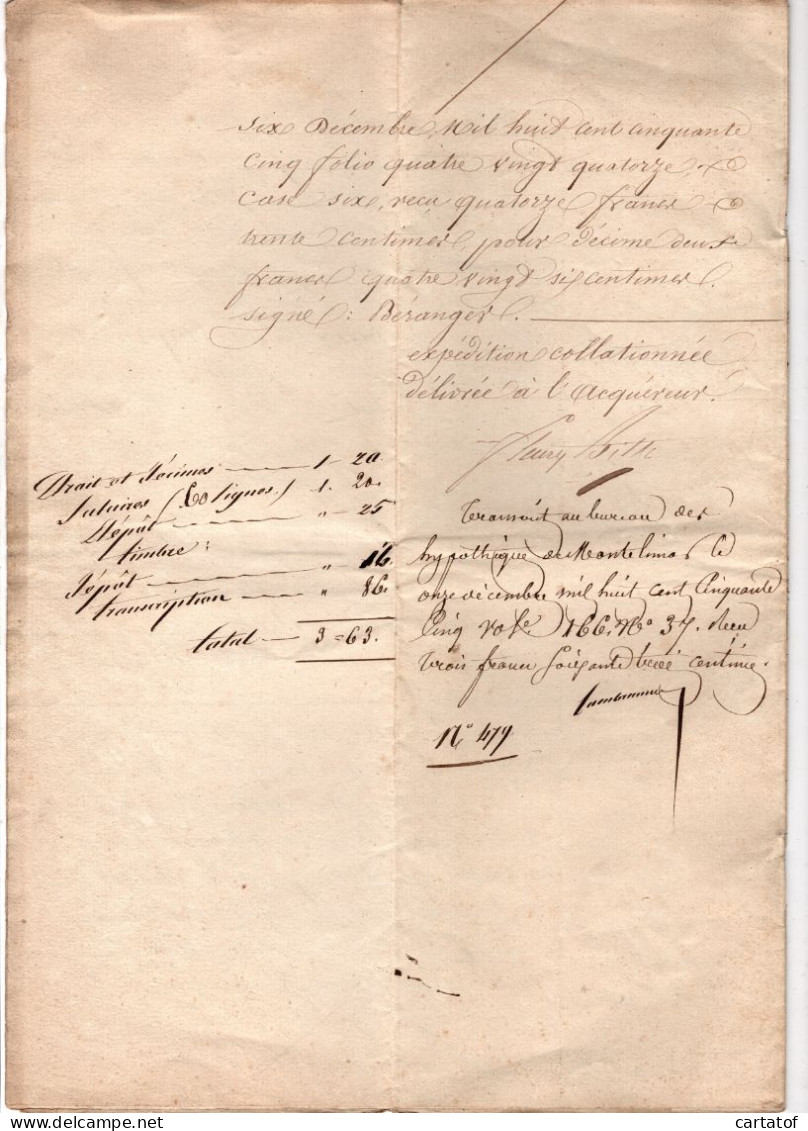 six Décembre, Mil huit cent cinquante
cinq folio quatre vingt quatorze
case six, reçu quatorze francs
trente centimes, pour décime deux
francs quatre vingt six centimes.
signé : Béranger.
expédition collationnée
délivrée à l'Acquéreur.
Droit et Décimes — 1 - 20.
Salaires (60 lignes.) 1. 20.
Dépôt — " - 25
timbre :
Dépôt — " 16.
transcription — " 86.
total — 3 = 63.
Transcrit au bureau des
hypothèque de Montelimar le
onze décembre mil huit cent cinquante
Cinq vol. 166. N° 37. Reçu
trois francs soixante trois centimes.
N° 479
cartatof